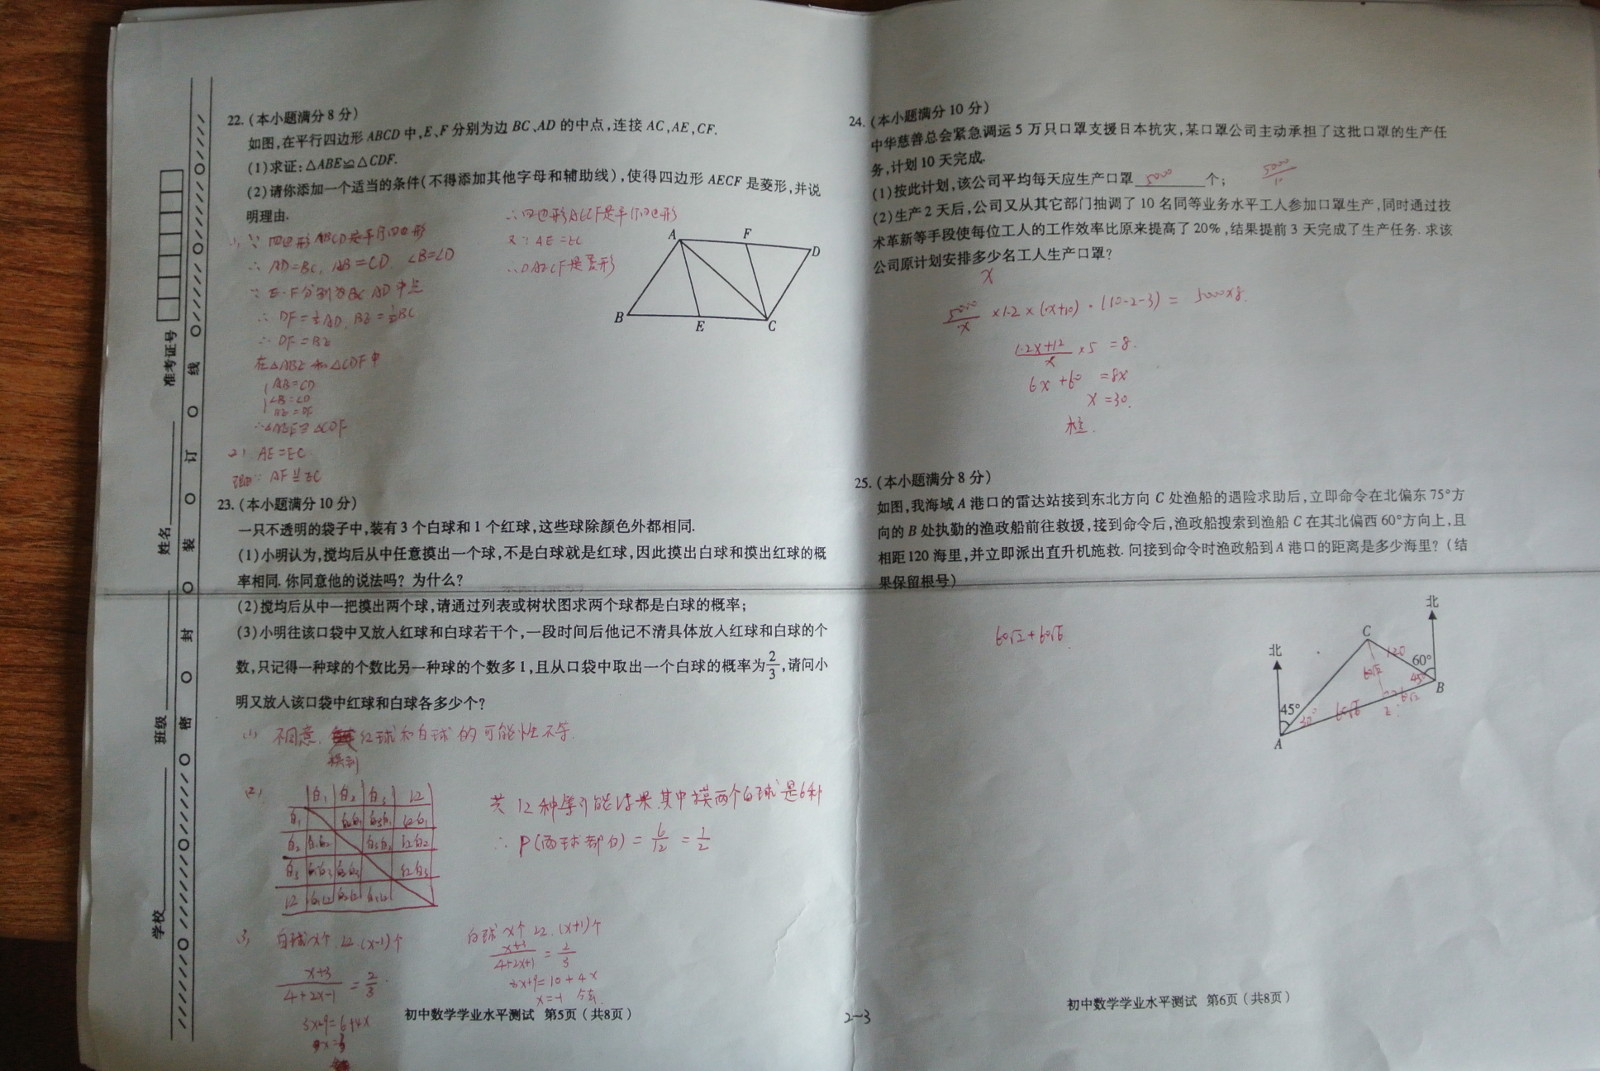 学校
班级
姓名
准考证号
密 封 装 订 线
22.(本小题满分8分)
如图,在平行四边形ABCD中,E、F分别为边BC、AD的中点,连接AC、AE、CF.
(1)求证:△ABE≌△CDF.
(2)请你添加一个适当的条件(不得添加其他字母和辅助线),使得四边形AECF是菱形,并说
明理由.
1) ∵ 四边形ABCD是平行四边形
∴ AD=BC, AB=CD ∠B=∠D
∵ E、F分别为BC AD中点
∴ DF=½AD, BE=½BC
∴ DF=BE
在△ABE和△CDF中
AB=CD
∠B=∠D
BE=DF
∴△ABE≌△CDF
2) AE=EC
∴四边形AECF是平行四边形
又∵AE=EC
∴▱AECF是菱形
A F D
B E C
23.(本小题满分10分)
一只不透明的袋子中,装有3个白球和1个红球,这些球除颜色外都相同.
(1)小明认为,搅均后从中任意摸出一个球,不是白球就是红球,因此摸出白球和摸出红球的概
率相同.你同意他的说法吗?为什么?
(2)搅均后从中一把摸出两个球,请通过列表或树状图求两个球都是白球的概率;
(3)小明往该口袋中又放入红球和白球若干个,一段时间后他记不清具体放入红球和白球的个
数,只记得一种球的个数比另一种球的个数多1,且从口袋中取出一个白球的概率为2/3,请问小
明又放入该口袋中红球和白球各多少个?
(1) 不同意. 红球和白球的可能性不等.
摸到
(2)
白1 白2 白3 红
共12种等可能结果 其中摸两个白球是6种
∴ P(两球都白)=6/12=1/2
白球x个 红(x-1)个
(x+3)/(4+2x-1)=2/3
3x+9=6+4x
白球x个 红(x+1)个
(x+3)/(4+2x+1)=2/3
3x+9=10+4x
x=-1
初中数学学业水平测试 第5页(共8页)
2-3
24.(本小题满分10分)
中华慈善总会紧急调运5万只口罩支援日本抗灾,某口罩公司主动承担了这批口罩的生产任
务,计划10天完成.
(1)按此计划,该公司平均每天应生产口罩 5000 个;
(2)生产2天后,公司又从其它部门抽调了10名同等业务水平工人参加口罩生产,同时通过技
术革新等手段使每位工人的工作效率比原来提高了20%,结果提前3天完成了生产任务.求该
公司原计划安排多少名工人生产口罩?
x
5000/x ×1.2×(x+10)·(10-2-3)=5000×8
(1.2x+12)/x ×5 =8
6x+60 =8x
x=30.
检.
25.(本小题满分8分)
如图,我海域A港口的雷达站接到东北方向C处渔船的遇险求助后,立即命令在北偏东75°方
向的B处执勤的渔政船前往救援,接到命令后,渔政船搜索到渔船C在其北偏西60°方向上,且
相距120海里,并立即派出直升机施救.问接到命令时渔政船到A港口的距离是多少海里?(结
果保留根号)
60√2+60√6
北
北
C
120
60°
60√2
45°
B
45°
30°
60√6
60√2
A
初中数学学业水平测试 第6页(共8页)